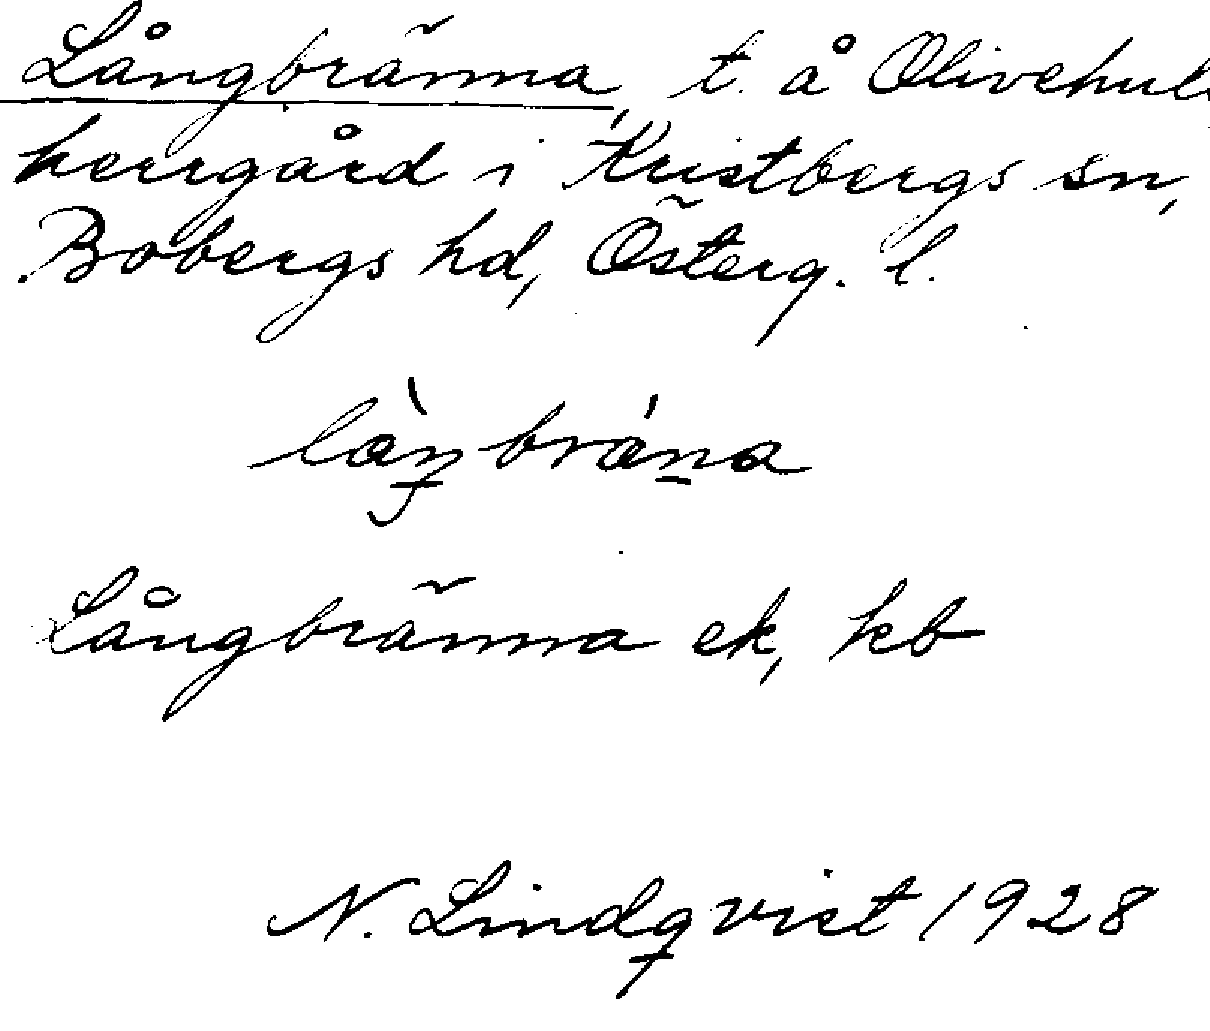 Långbränna, t. å Olivehult
herrgård i Kristbergs sn,
Bobergs hd, Österg. l.
Långbränna ek, kb
N. Lindqvist 1928